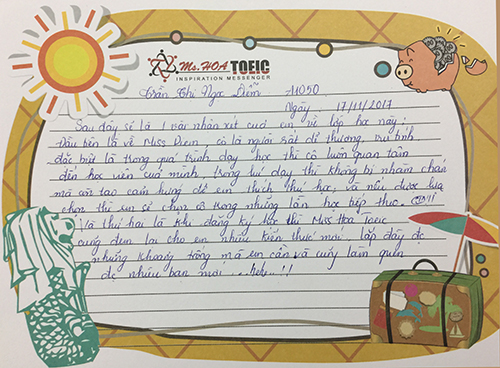 Ms. HOA TOEIC
INSPIRATION MESSENGER
Trần Thị Ngọc Diễm 11050
Ngày: 17/11/2017
Sau đây sẽ là 1 vài nhận xét của em về lớp học này:
Đầu tiên là về Miss Diem, cô là người rất dễ thương, vui tính
đặc biệt là trong quá trình dạy học thì cô luôn quan tâm
đến học viên của mình, trong lúc dạy thì không bị nhàm chán
mà còn tạo cảm hứng để em thích thú học, và nếu được lựa
chọn thì em sẽ chọn cô trong những lần học tiếp theo.
là thứ hai là khi đăng ký học thì Miss Hoa Toeic
cũng đem lại cho em nhiều kiến thức mới lấp đầy đc
những khoảng trống mà em cần và cũng làm quen
đc nhiều bạn mới ...hehe...!!